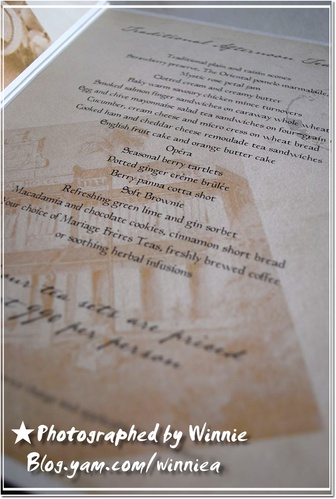 Traditional Afternoon Tea
Traditional plain and raisin scones
Strawberry preserve, The Oriental pomelo marmalade,
Mystic rose petal jam
Clotted cream and creamery butter
Flaky warm savoury chicken mince turnovers
Smoked salmon finger sandwiches on caraway whole wheat
Egg and chive mayonnaise salad tea sandwiches on four-grain
Cucumber, cream cheese and micro cress on wheat bread
Cooked ham and cheddar cheese remoulade tea sandwiches
English fruit cake and orange butter cake
Opéra
Seasonal berry tartlets
Potted ginger crème brûlée
Berry panna cotta shot
Soft Brownie
Refreshing green lime and gin sorbet
Macadamia and chocolate cookies, cinnamon short bread
Your choice of Mariage Frères Teas, freshly brewed coffee
or soothing herbal infusions
our tea sets are priced
at 990 per person
★Photographed by Winnie
Blog.yam.com/winniea